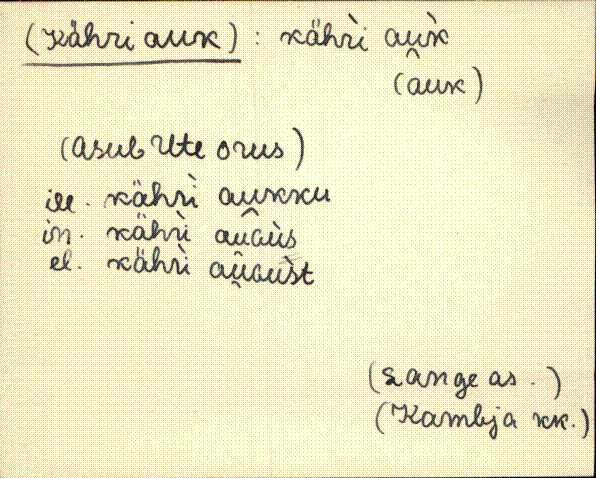 (Kähri auk) : kährì au̯k̀
(âuk)
(asub Ute orus)
ill. kährì aukku
in. kährì au̯ûaùs
el. kährì au̯ûaùst
(Lange as.)
(Kambja kk.)